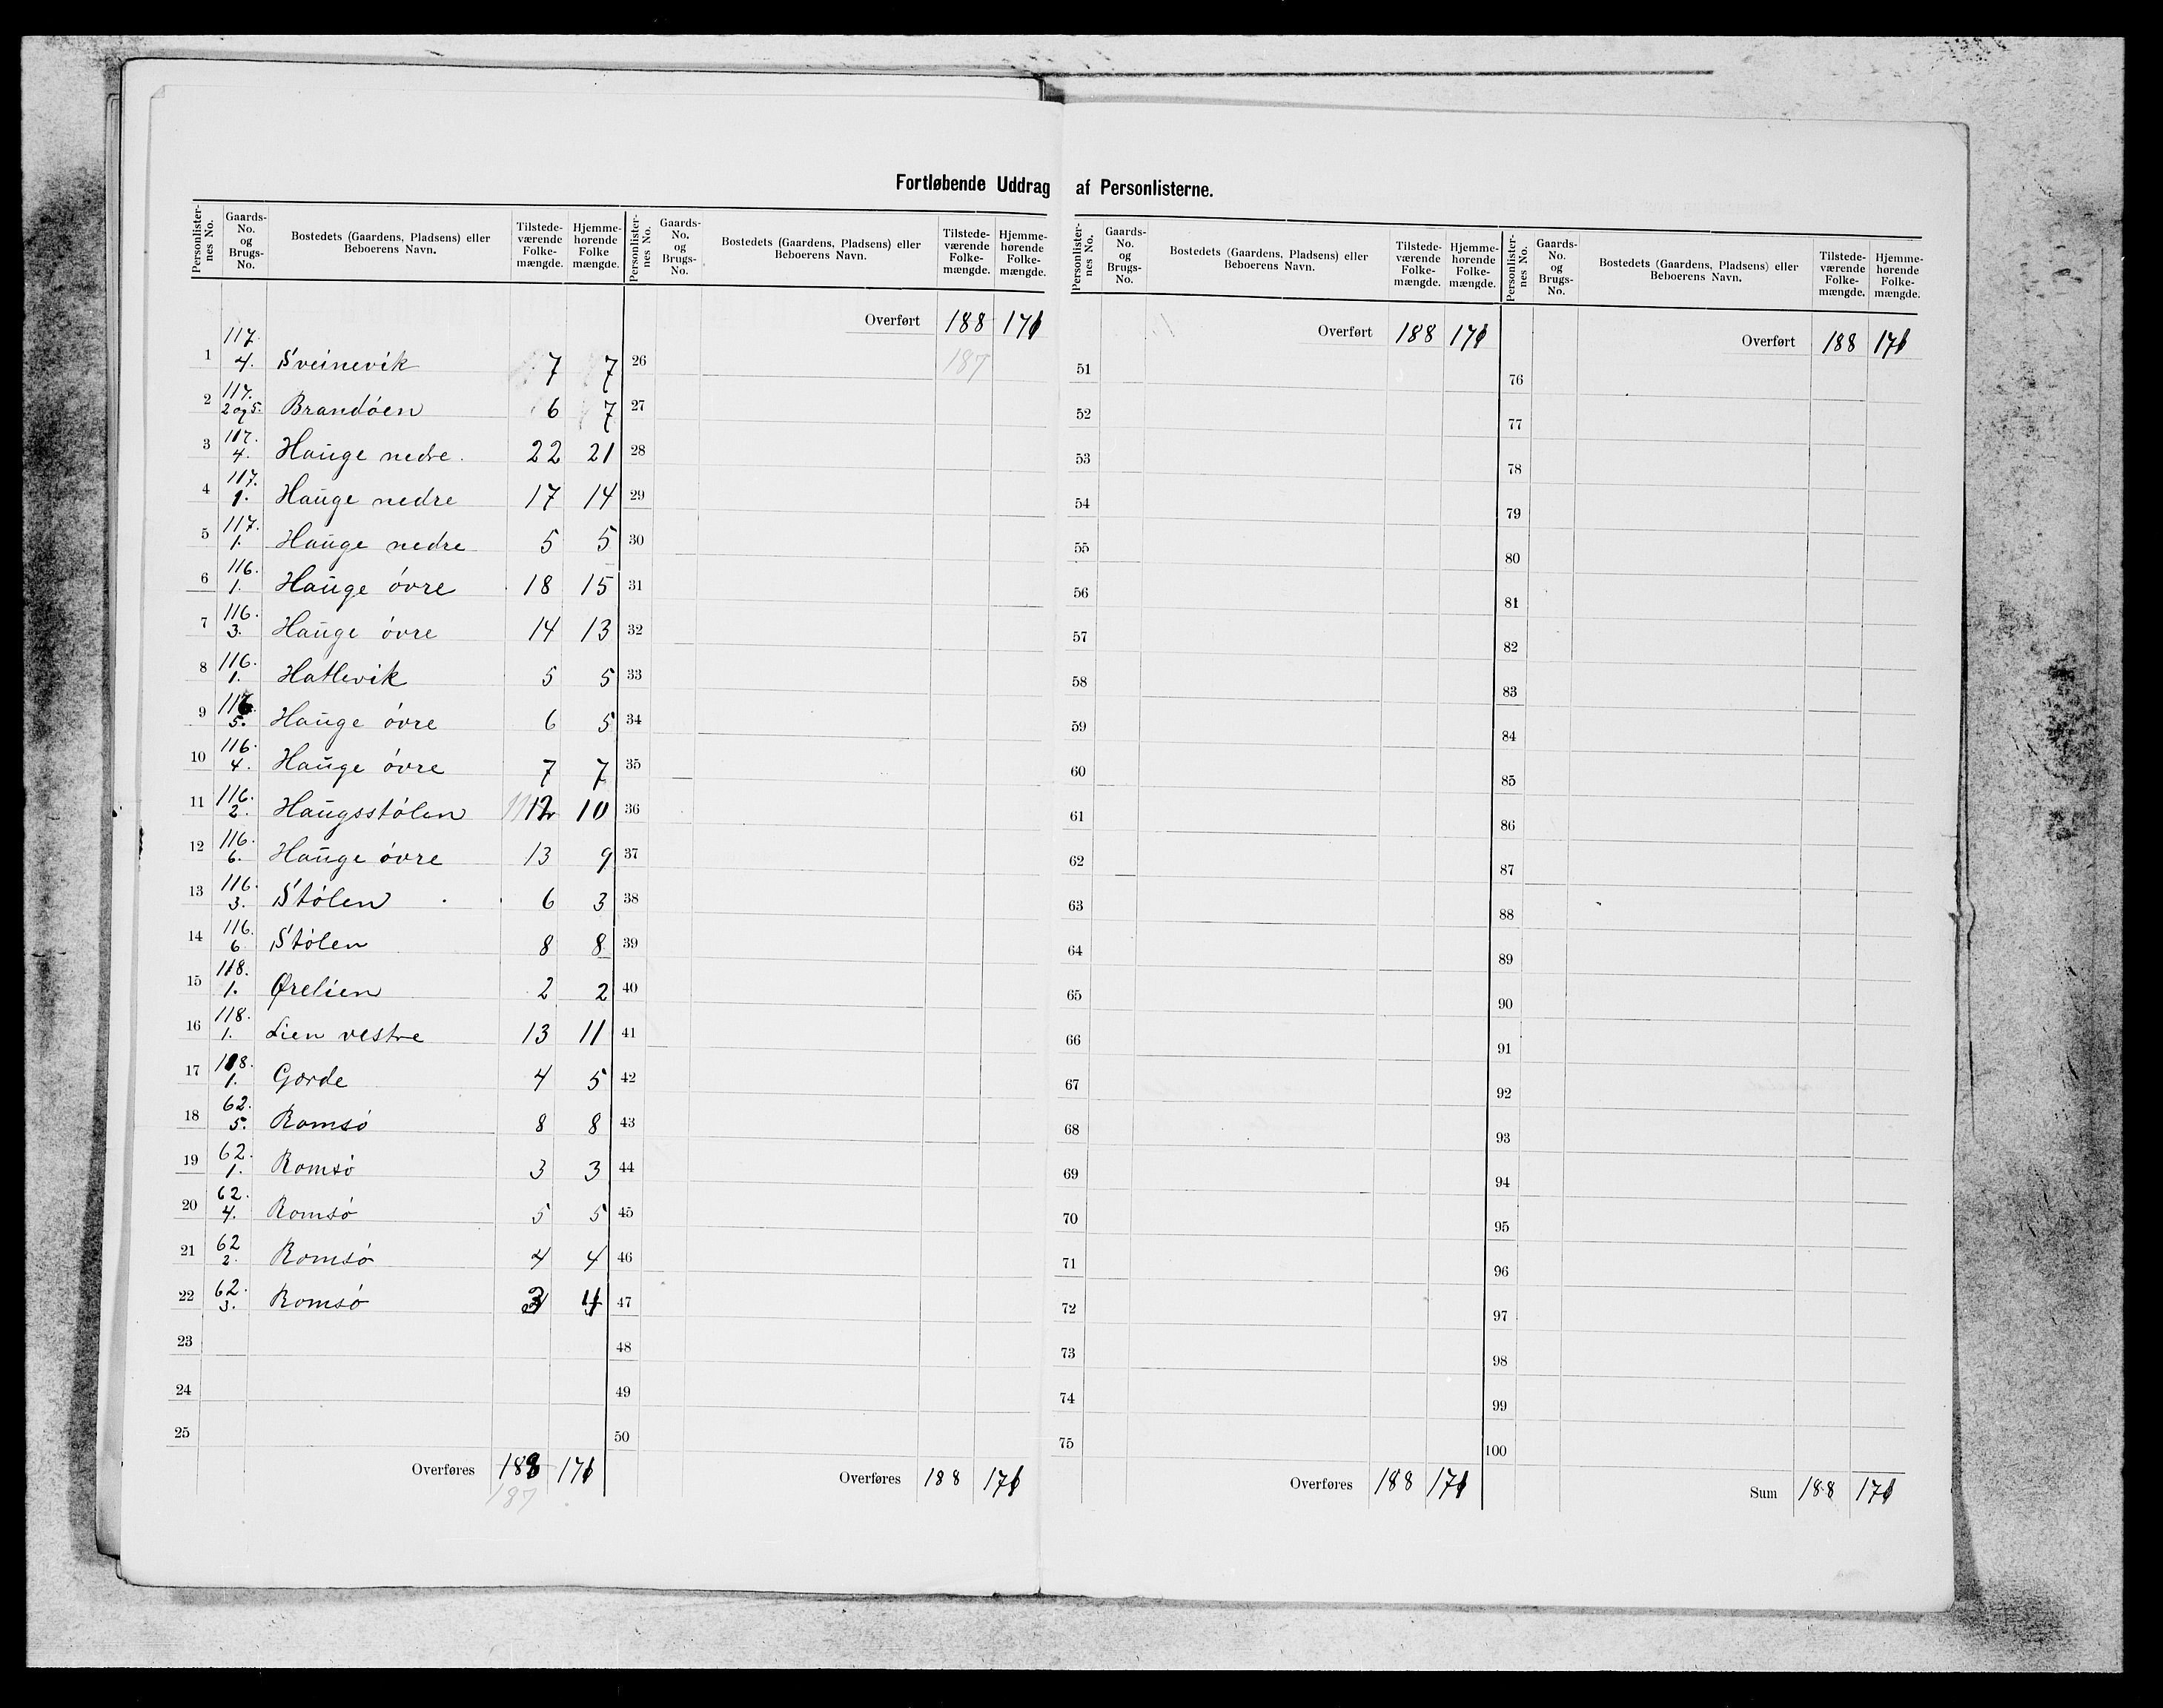 Fortløbende Uddrag af Personlisterne.
Personlister-nes No. | Gaards-No. og Brugs-No. | Bostedets (Gaardens, Pladsens) eller Beboerens Navn. | Tilstede-værende Folke-mængde. | Hjemme-hørende Folke mængde.
1 117. 4. Sveinevik 7 7
2 117. 2 og 5. Brandøen 6 7
3 117. 4. Hauge nedre. 22 21
4 117. 1. Hauge nedre 17 14
5 117. 1. Hauge nedre 5 5
6 116. 1. Hauge øvre 18 15
7 116. 3. Hauge øvre 14 13
8 116. 1. Hatlevik 5 5
9 116. 5. Hauge øvre 6 5
10 116. 4. Hauge øvre 7 7
11 116. 2. Haugsstølen 12 10
12 116. 6. Hauge øvre 13 9
13 116. 3. Stølen 6 3
14 116. 6 Stølen 8 8
15 118. 1. Ørelien 2 2
16 118. 1. Lien vestre 13 11
17 118. 1. Gjerde 4 5
18 62. 5. Romsø 8 8
19 62. 1. Romsø 3 3
20 62. 4. Romsø 5 5
21 62 2. Romsø 4 4
22 62. 3. Romsø 3 4
23
24
25
Overføres 188 171
187
Personlister-nes No. | Gaards-No. og Brugs-No. | Bostedets (Gaardens, Pladsens) eller Beboerens Navn. | Tilstede-værende Folke-mængde. | Hjemme-hørende Folke-mængde.
Overført 188 171
26 187
27
28
29
30
31
32
33
34
35
36
37
38
39
40
41
42
43
44
45
46
47
48
49
50
Overføres 188 171
Personlister-nes No. | Gaards-No. og Brugs-No. | Bostedets (Gaardens, Pladsens) eller Beboerens Navn. | Tilstede-værende Folke-mængde. | Hjemme-hørende Folke-mængde.
Overført 188 171
51
52
53
54
55
56
57
58
59
60
61
62
63
64
65
66
67
68
69
70
71
72
73
74
75
Overføres 188 171
Personlister-nes No. | Gaards-No. og Brugs-No. | Bostedets (Gaardens, Pladsens) eller Beboerens Navn. | Tilstede-værende Folke-mængde. | Hjemme-hørende Folke-mængde.
Overført 188 171
76
77
78
79
80
81
82
83
84
85
86
87
88
89
90
91
92
93
94
95
96
97
98
99
100
Sum 188 171